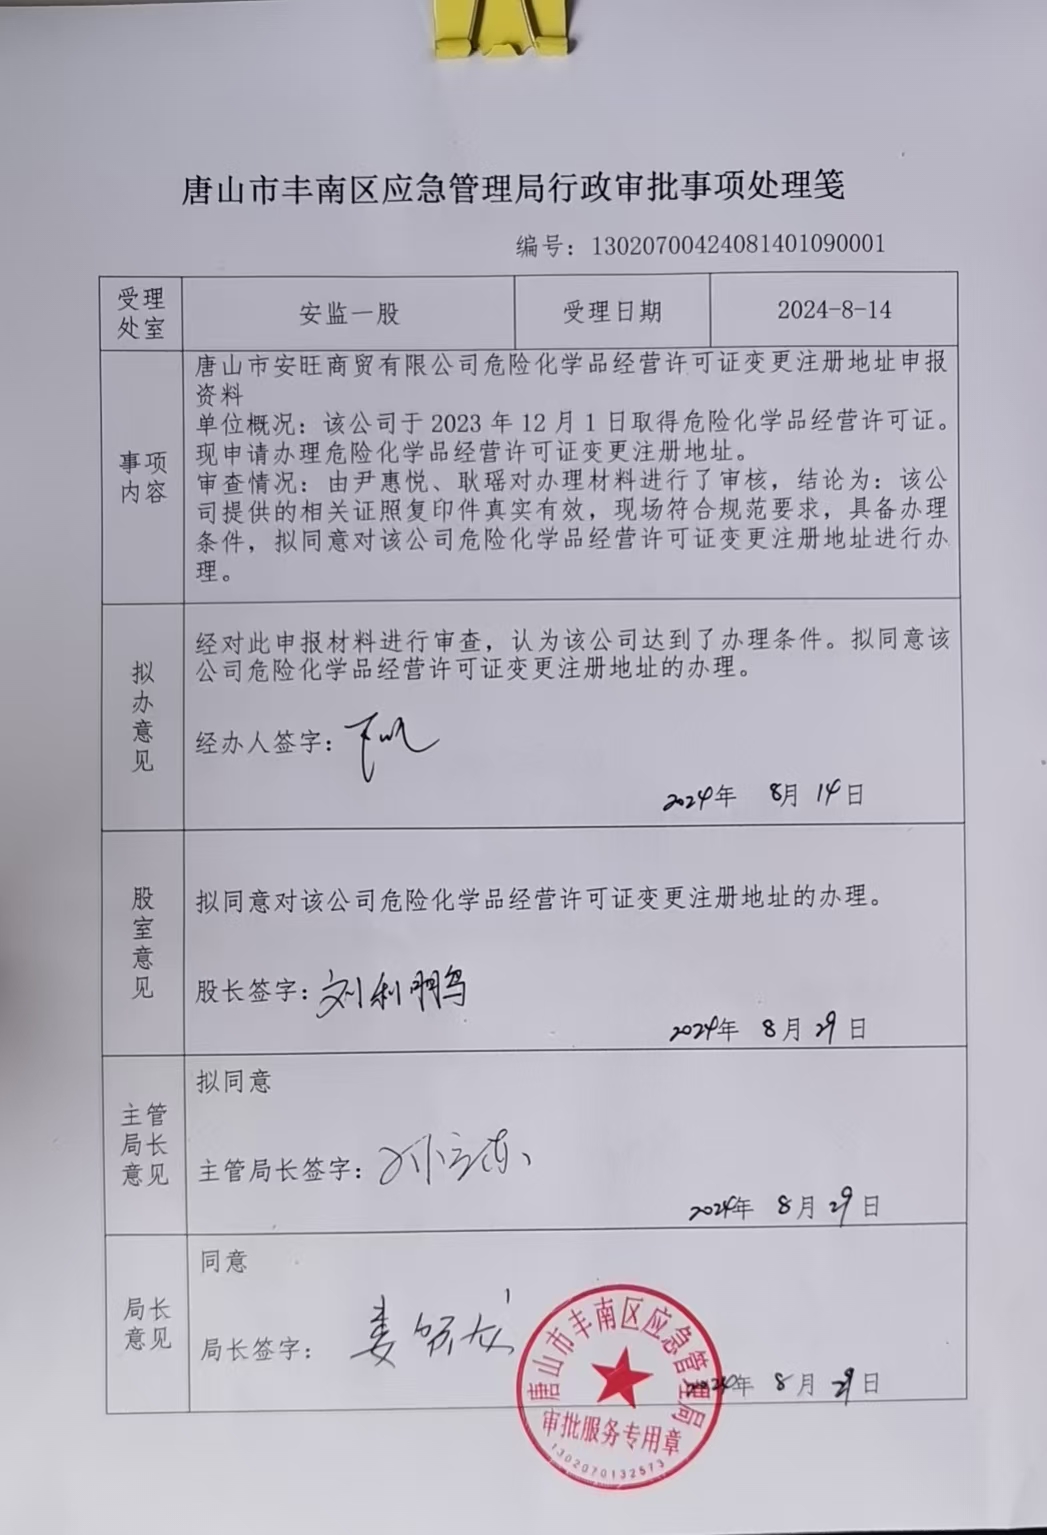 唐山市丰南区应急管理局行政审批事项处理笺
编号：13020700424081401090001
受理
处室
安监一股
受理日期
2024-8-14
事项
内容
唐山市安旺商贸有限公司危险化学品经营许可证变更注册地址申报
资料
单位概况：该公司于 2023 年 12 月 1 日取得危险化学品经营许可证。
现申请办理危险化学品经营许可证变更注册地址。
审查情况：由尹惠悦、耿瑶对办理材料进行了审核，结论为：该公
司提供的相关证照复印件真实有效，现场符合规范要求，具备办理
条件，拟同意对该公司危险化学品经营许可证变更注册地址进行办
理。
拟
办
意
见
经对此申报材料进行审查，认为该公司达到了办理条件。拟同意该
公司危险化学品经营许可证变更注册地址的办理。
经办人签字：
2024年 8月 14日
股
室
意
见
拟同意对该公司危险化学品经营许可证变更注册地址的办理。
股长签字：刘利鹏
2024年 8月 29日
主管
局长
意见
拟同意
主管局长签字：
2024年 8月 29日
局长
意见
同意
局长签字：
2024年 8月 29日
唐山市丰南区应急管理局
审批服务专用章
1302070132573